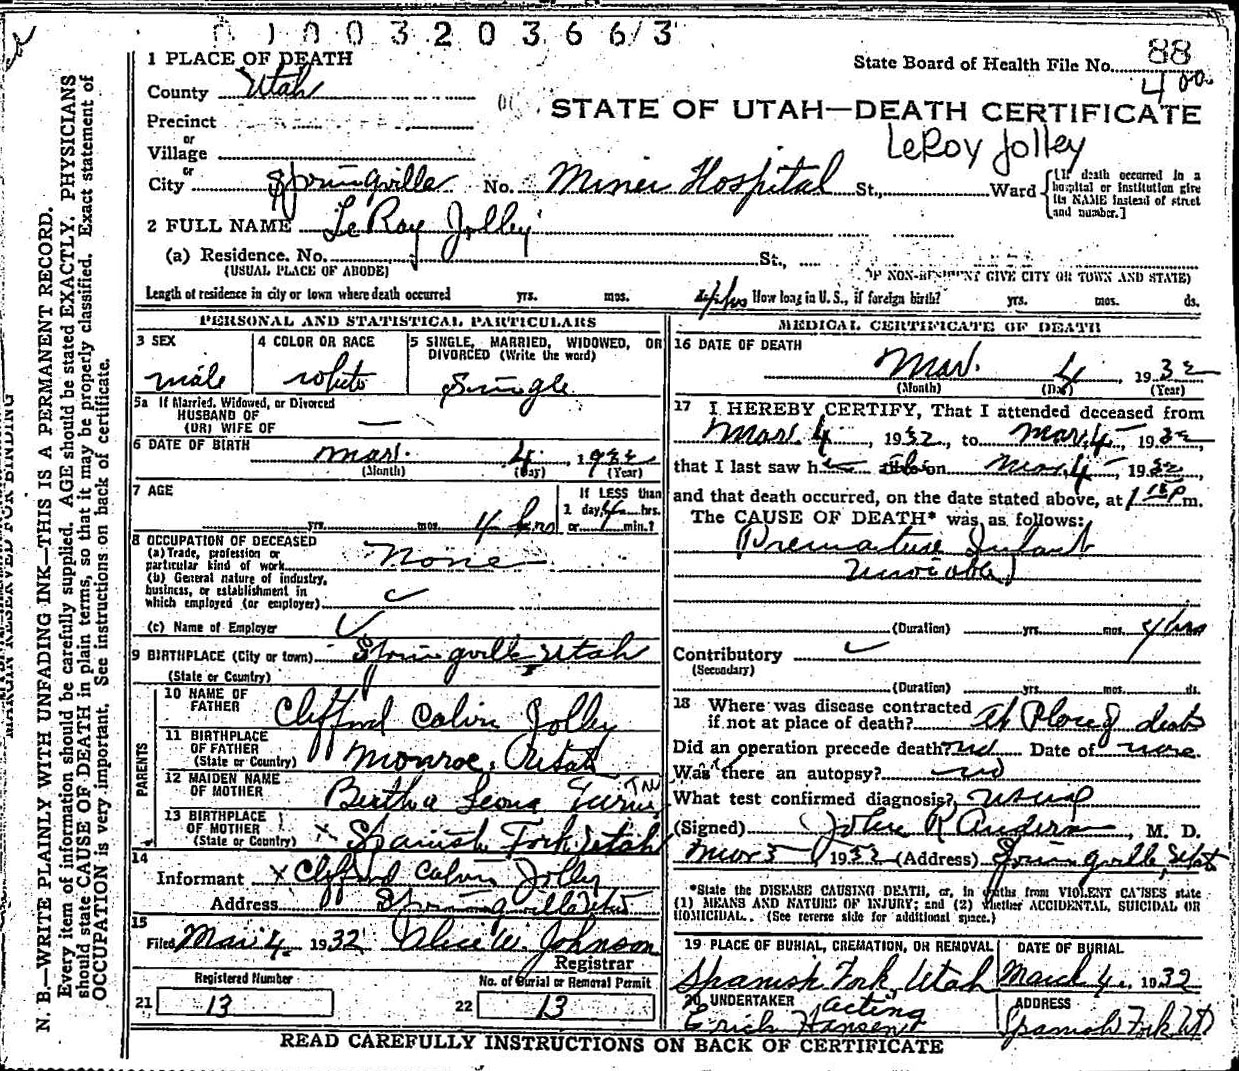 0 1 0 0 3 2 0 3 6 6/3
1 PLACE OF DEATH
State Board of Health File No. 88
County Utah
400
STATE OF UTAH—DEATH CERTIFICATE
Precinct
LeRoy Jolley
or
Village
or
City Springville No. Miner Hospital St., Ward [If death occurred in a hospital or institution give its NAME instead of street and number.]
2 FULL NAME LeRoy Jolley
(a) Residence. No. St.,
(USUAL PLACE OF ABODE) (IF NON-RESIDENT GIVE CITY OR TOWN AND STATE)
Length of residence in city or town where death occurred yrs. mos. 4 hrs How long in U. S., if foreign birth? yrs. mos. ds.
PERSONAL AND STATISTICAL PARTICULARS
3 SEX
male
4 COLOR OR RACE
white
5 SINGLE, MARRIED, WIDOWED, OR
DIVORCED (Write the word)
Single
5a If Married, Widowed, or Divorced
HUSBAND OF
(OR) WIFE OF —
6 DATE OF BIRTH Mar. 4, 1932
(Month) (Day) (Year)
7 AGE
yrs. mos. 4 hrs
If LESS than
1 day, 4 hrs.
or min.?
8 OCCUPATION OF DECEASED
(a) Trade, profession or
particular kind of work None
(b) General nature of industry,
business, or establishment in
which employed (or employer)
(c) Name of Employer
9 BIRTHPLACE (City or town) Springville Utah
(State or Country)
PARENTS
10 NAME OF
FATHER Clifford Calvin Jolley
11 BIRTHPLACE
OF FATHER
(State or Country) Monroe, Utah
12 MAIDEN NAME
OF MOTHER Bertha Leona
13 BIRTHPLACE
OF MOTHER
(State or Country) x Spanish Fork Utah
14
Informant x Clifford Calvin Jolley
Address Springville Utah
15
Filed Mar 4, 1932 Alice W. Johnson
Registrar
Registered Number
21 13
No. of Burial or Removal Permit
22 13
MEDICAL CERTIFICATE OF DEATH
16 DATE OF DEATH
Mar. 4, 1932
(Month) (Day) (Year)
17 I HEREBY CERTIFY, That I attended deceased from
Mar. 4, 1932, to Mar. 4, 1932
that I last saw h on Mar. 4, 1932
and that death occurred, on the date stated above, at 1 15 P m.
The CAUSE OF DEATH* was as follows:
Premature Infant
(Duration) yrs. mos. 4 hrs
Contributory
(Secondary)
(Duration) yrs. mos. ds.
18 Where was disease contracted
if not at place of death? at Place of death
Did an operation precede death? no Date of none
Was there an autopsy? no
What test confirmed diagnosis? usual
(Signed) John R Anderson, M. D.
Mar 5 1932 (Address) Springville, Utah
*State the DISEASE CAUSING DEATH, or, in deaths from VIOLENT CAUSES state
(1) MEANS AND NATURE OF INJURY; and (2) whether ACCIDENTAL, SUICIDAL OR
HOMICIDAL. (See reverse side for additional space.)
19 PLACE OF BURIAL, CREMATION, OR REMOVAL
Spanish Fork, Utah
DATE OF BURIAL
March 4, 1932
20 UNDERTAKER acting
Erich Hansen
ADDRESS
Spanish Fork Ut
READ CAREFULLY INSTRUCTIONS ON BACK OF CERTIFICATE
MARGIN RESERVED FOR BINDING
N. B.—WRITE PLAINLY WITH UNFADING INK—THIS IS A PERMANENT RECORD.
Every item of information should be carefully supplied. AGE should be stated EXACTLY. PHYSICIANS
should state CAUSE OF DEATH in plain terms, so that it may be properly classified. Exact statement of
OCCUPATION is very important. See instructions on back of certificate.